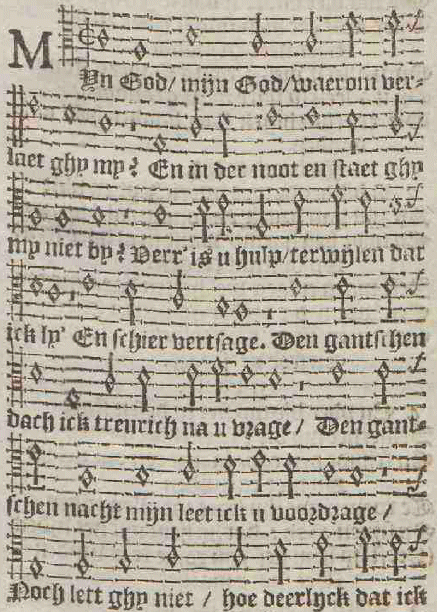 MYn God/ mijn God/waerom ver-
laet ghy my? En in der noot en staet ghy
my niet by? Verr' is u hulp/terwijlen dat
ick ly' En schier vertsage. Den gantschen
dach ick treurich na u vrage/ Den gant-
schen nacht mijn leet ick u voordrage/
Noch lett ghy niet / hoe deerlyck dat ick